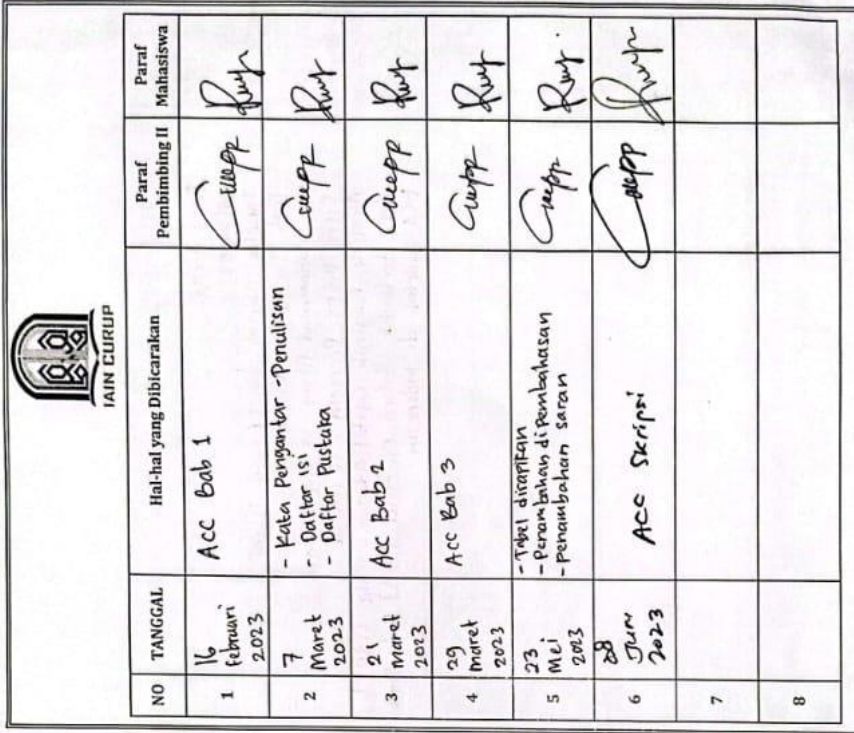 IAIN CURUP
NO TANGGAL Hal-hal yang Dibicarakan Paraf Pembimbing II Paraf Mahasiswa
1 16 Februari 2023 ACC Bab 1
2 7 Maret 2023 - Kata Pengantar - Penulisan
- Daftar isi
- Daftar Pustaka
3 21 Maret 2023 ACC Bab 2
4 29 Maret 2023 ACC Bab 3
5 23 Mei 2023 - Tabel dirapikan
- Penambahan di Pembahasan
- Penambahan saran
6 2023 ACC Skripsi
7
8